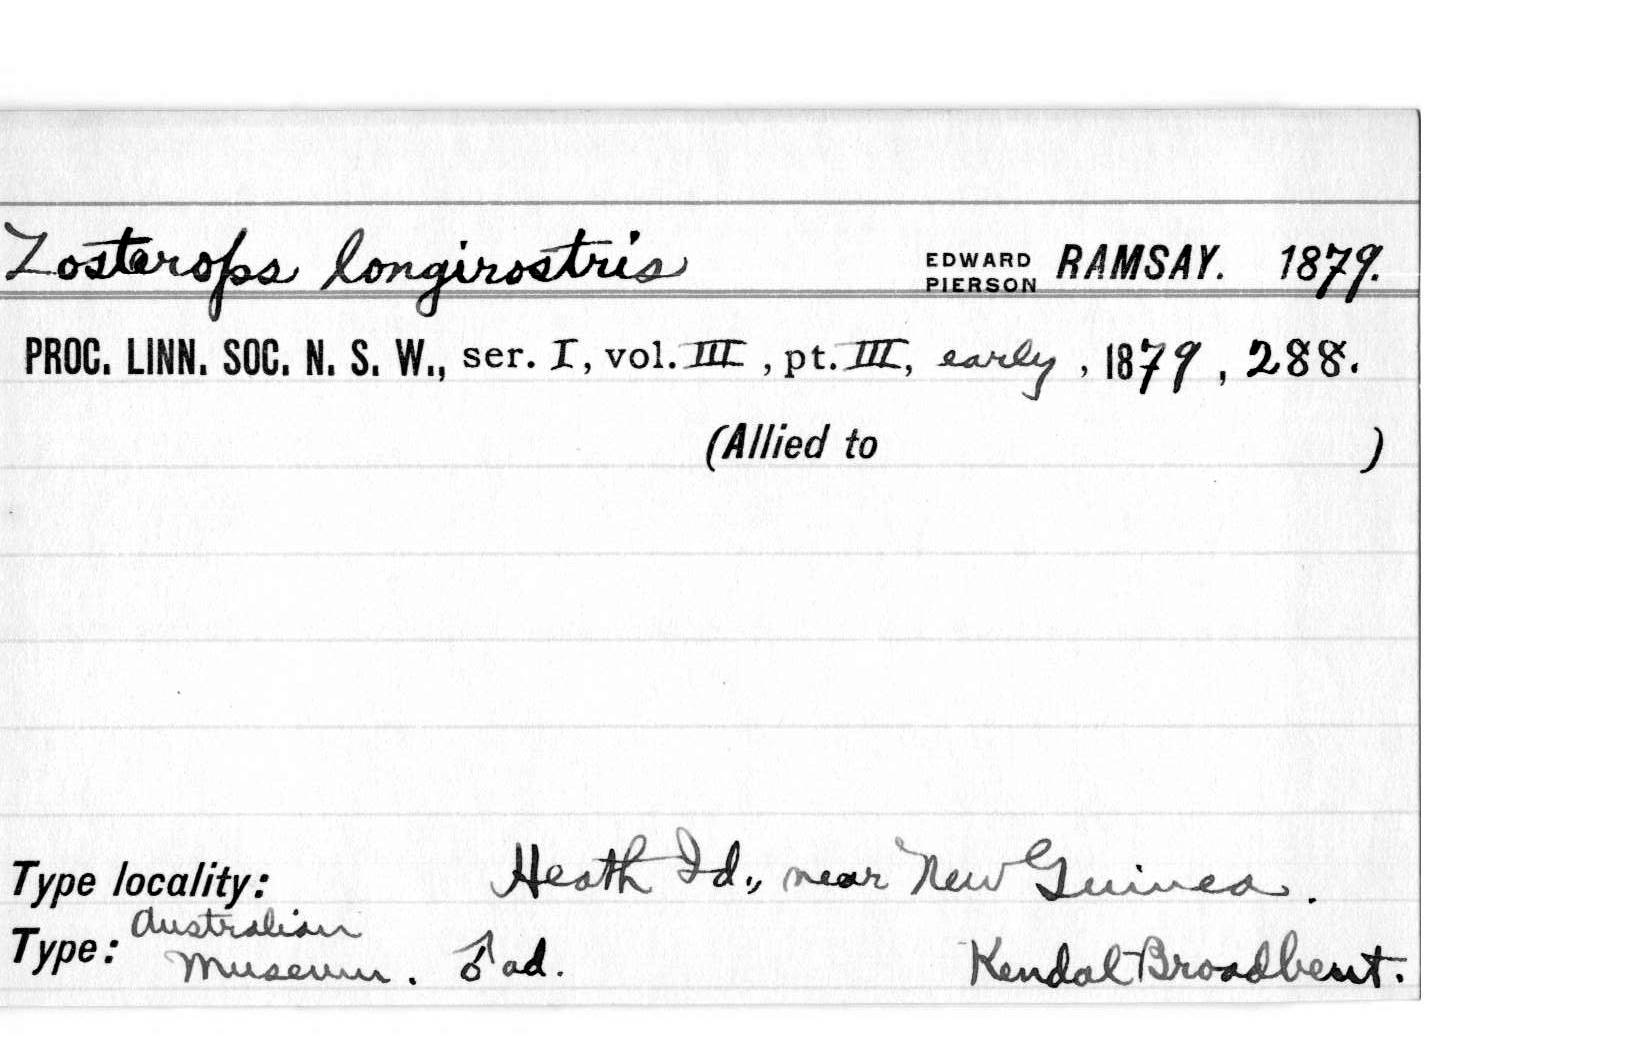 Zosterops longirostris EDWARD PIERSON RAMSAY. 1879.
PROC. LINN. SOC. N. S. W., ser. I, vol. III, pt. III, early, 1879, 288.
(Allied to )
Type locality: Heath Id., near New Guinea.
Type: Australian Museum. ♂ ad. Kendal Broadbent.